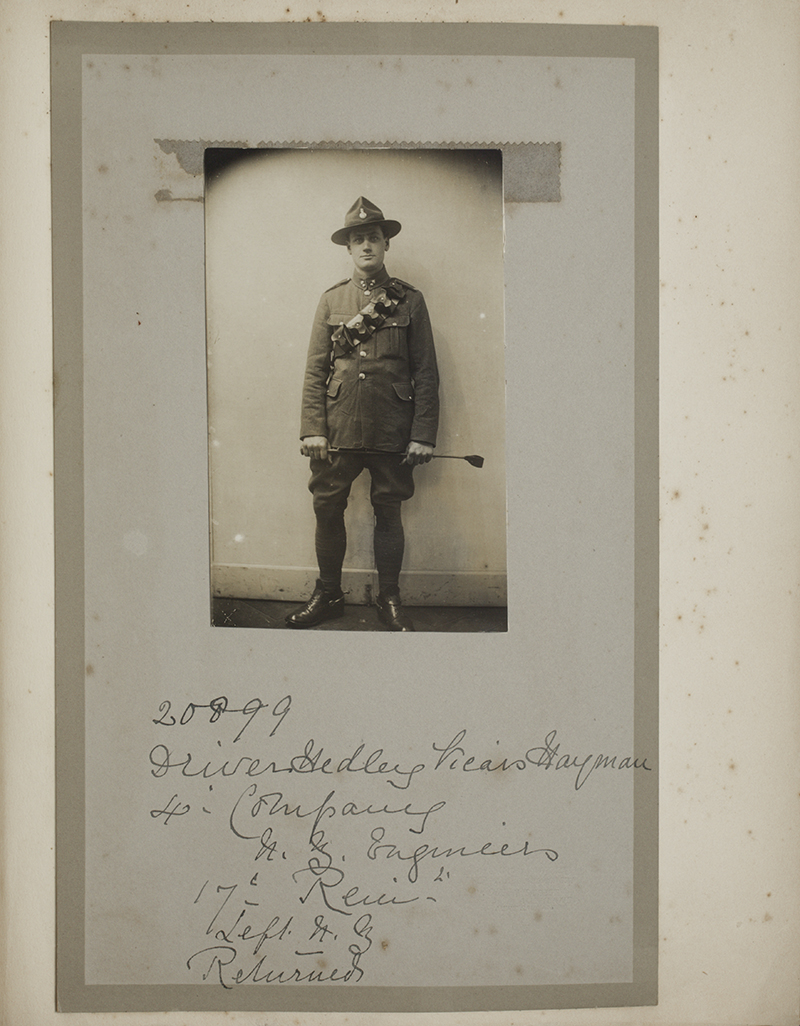 20899
Driver Hedley Vicars Hayman
4th Company
N. Z. Engineers
17th Rein
Left N. Z
Returned